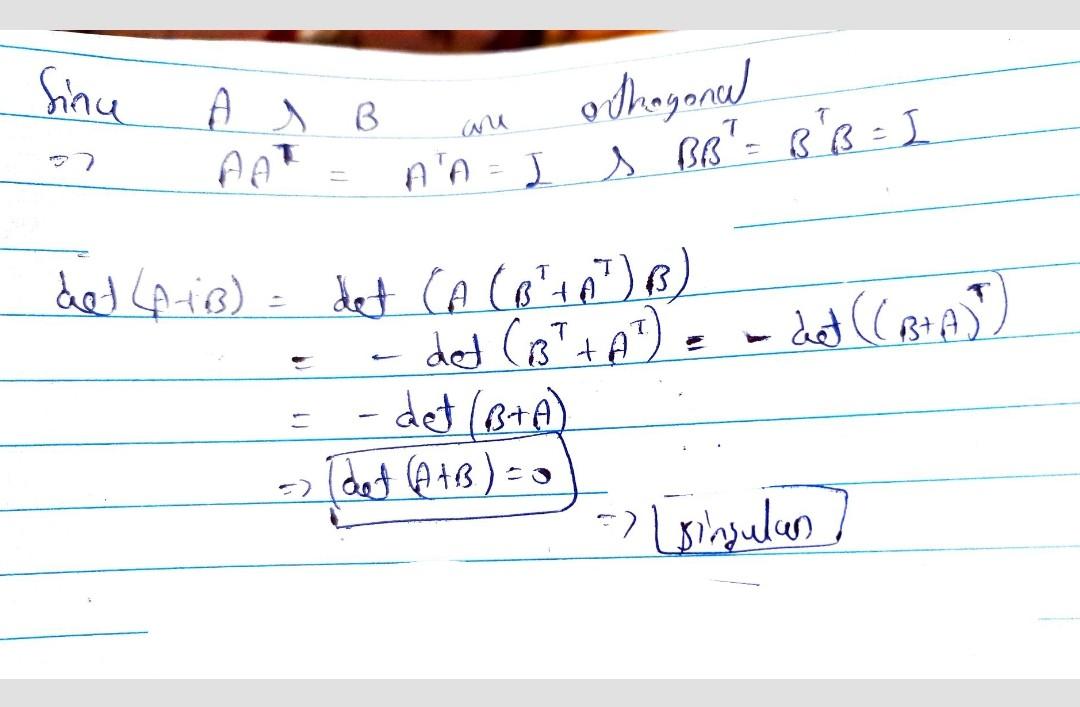 Since A & B are orthogonal
=> AAᵀ = AᵀA = I & BBᵀ = BᵀB = I
det (A+B) = det (A (Bᵀ+Aᵀ) B)
= - det (Bᵀ + Aᵀ) = - det ((B+A)ᵀ)
= - det (B+A)
=> det (A+B) = 0
=> singular